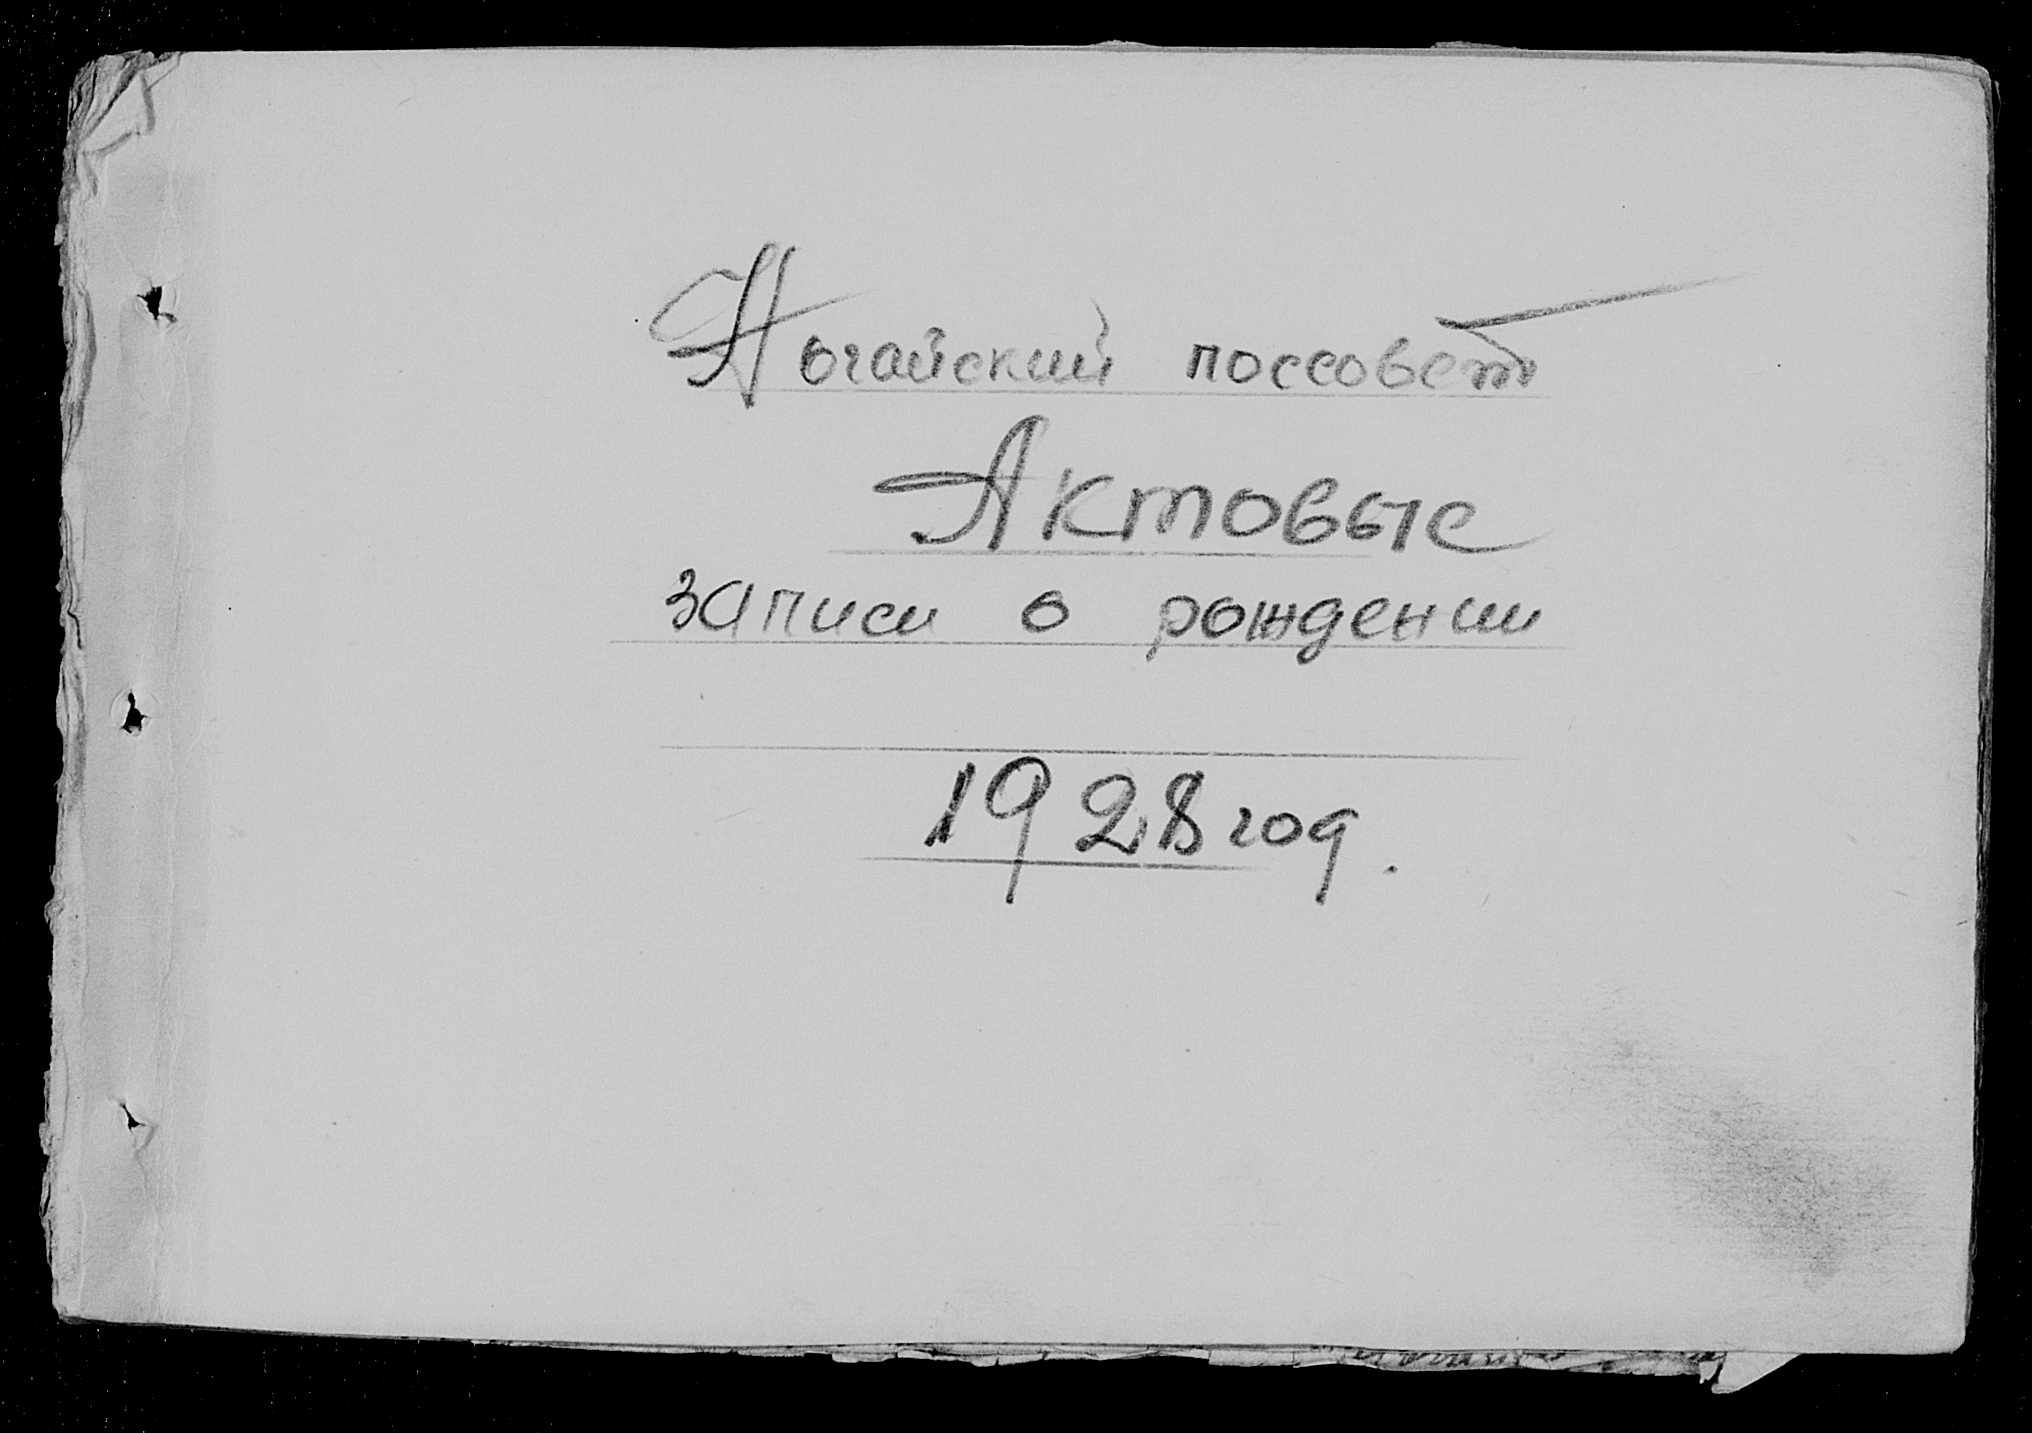 Ногайский поссовет
Актовые
записи о рождении
1928 год.